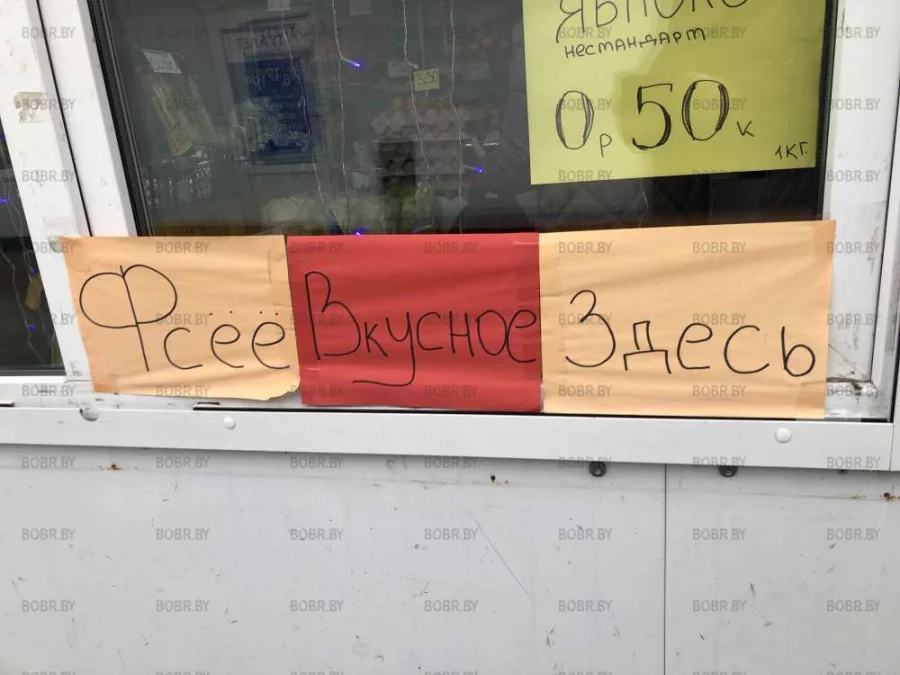 ЯБЛОКО
нестандарт
0р 50к
1кг.
Фсёё Вкусное Здесь
BOBR.BY